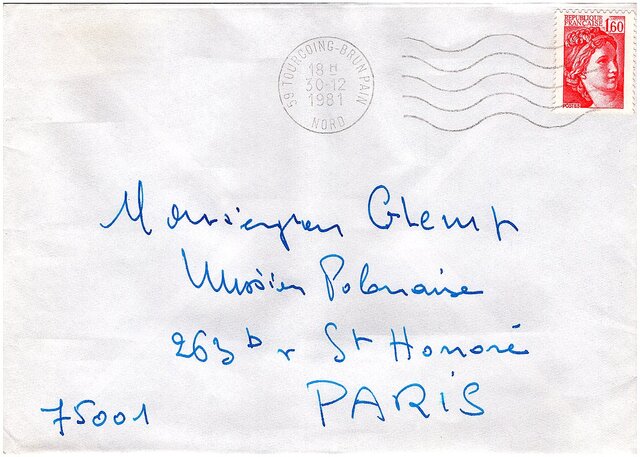 59 TOURCOING-BRUN PAIN
18 H
30-12
1981
NORD
REPUBLIQUE
FRANÇAISE
1,60
POSTES
Monseigneur Glemp
Mission Polonaise
263 b r St Honoré
75001 PARIS